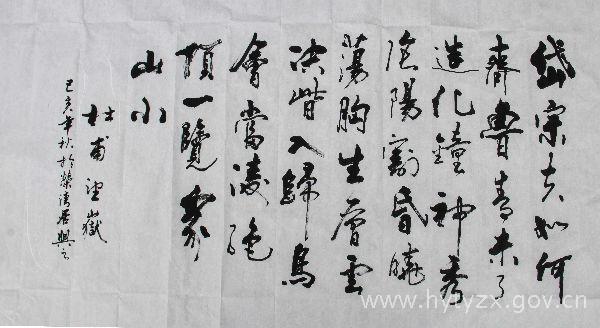 岱宗夫如何
齊魯青未了
造化鐘神秀
陰陽割昏曉
蕩胸生層雲
決眥入歸鳥
會當凌絕
頂一覽眾
山小
杜甫望嶽
己亥年秋於榮清居興之
www.hytyzx.gov.cn